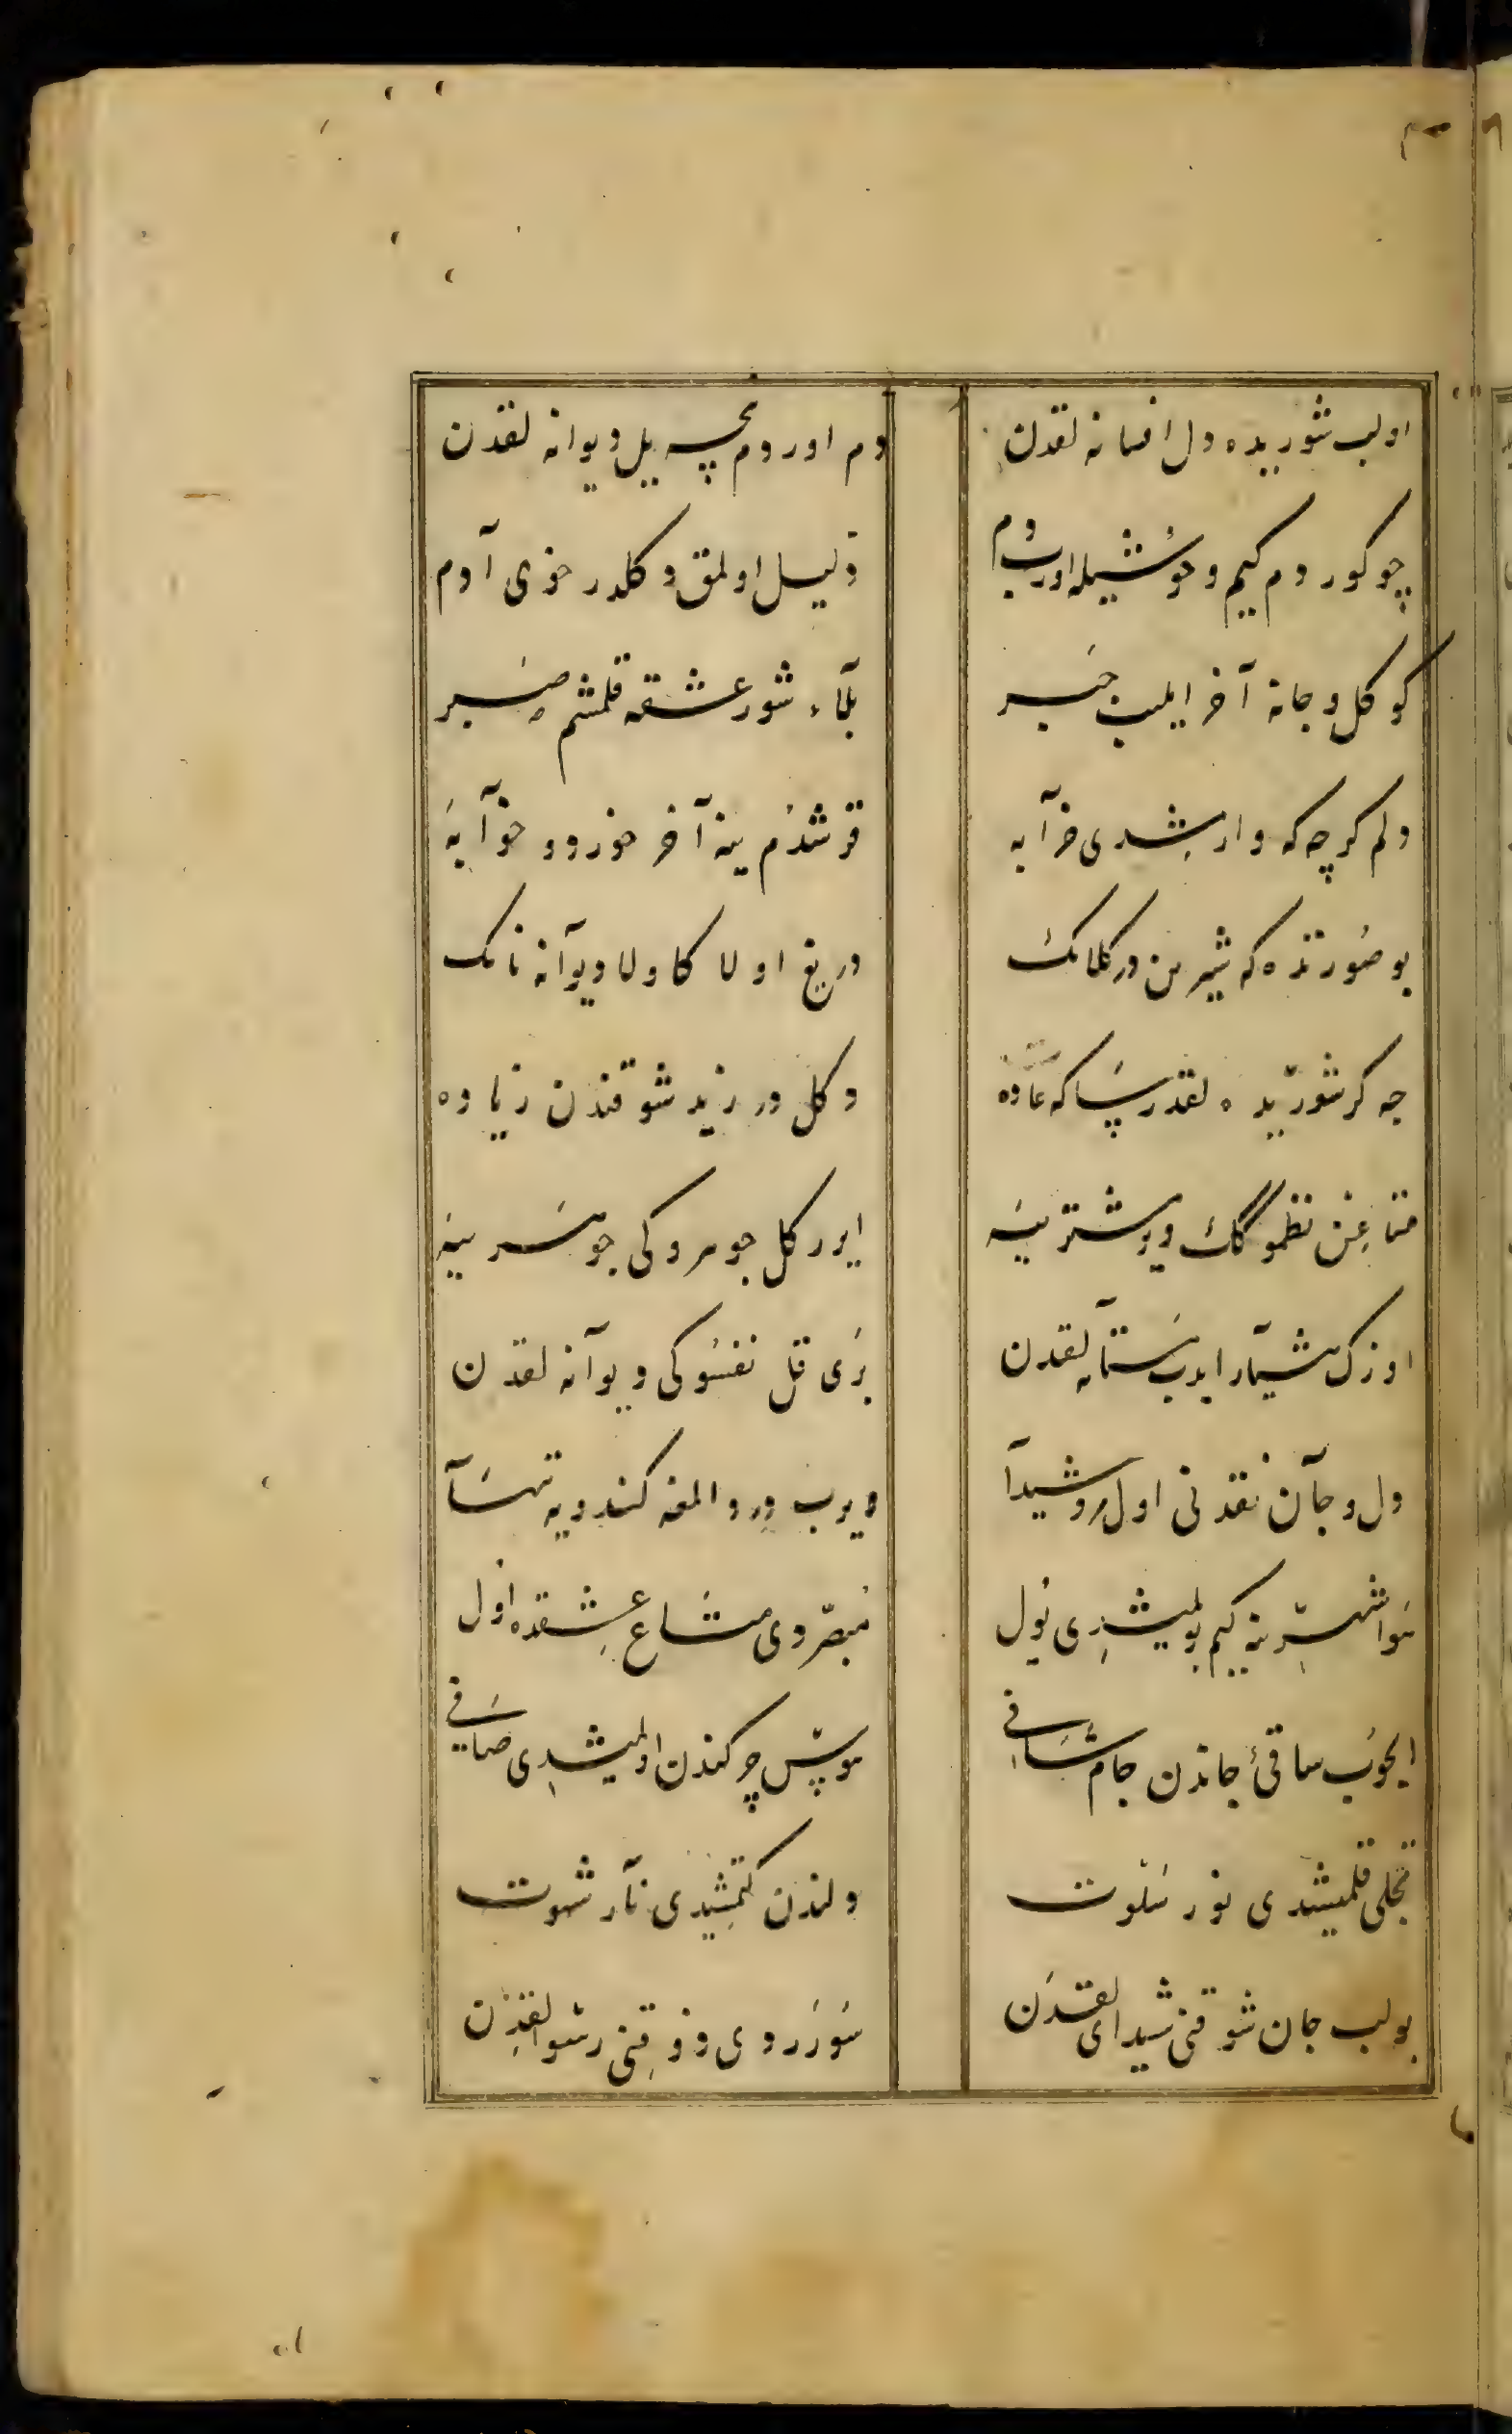 اولب شوریده دل افسانه لقدن
دم اوردم نچه ییل دیوانه لقدن
چو کوردم کیم وحوشیله اورب دم
دلیل اولمق دکلدر خوی آدم
کوکل و جانه آخر ایلیب جبر
بلاء شور عشقه قلمشم صبر
دلم کرچه که وارشدی خرآبه
قرشدم ینه آخر خورد و خوآبه
بو صورتده که شیرین در کلامک
دریغ اولا کاولا دیوآنه نامک
چه کر شوریده لقدر پسا که عاده
دکل در زید شوقندن زیاده
متاعن نظموکک ویر مشتریسه
ایرر کل جوهروکی جوهریسه
اوزک هشیآر ایدب مستآنه لقدن
بری قل نفسوکی دیوآنه لقدن
دل و جآن نقدنی اول مرد شیدآ
ویرب درد المغه کندویه تنهسآ
هوا شهرینه کیم بولمیشدی یول
مبصردی متاع عشقده اول
ایچوب ساقیٔ جاندن جام شافی
هوس چرکندن اولمیشدی صافی
تجلی قلمیشدی نور سلوت
دلندن کتمشیدی نآر شهوت
بولب جان شوقنی شیدای لقدن
سورردی ذوقنی رسوالقدن